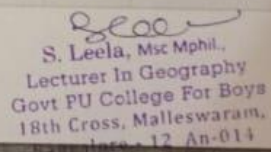 S. Leela, Msc Mphil.,
Lecturer In Geography
Govt PU College For Boys
18th Cross, Malleswaram,
- 12 An-014